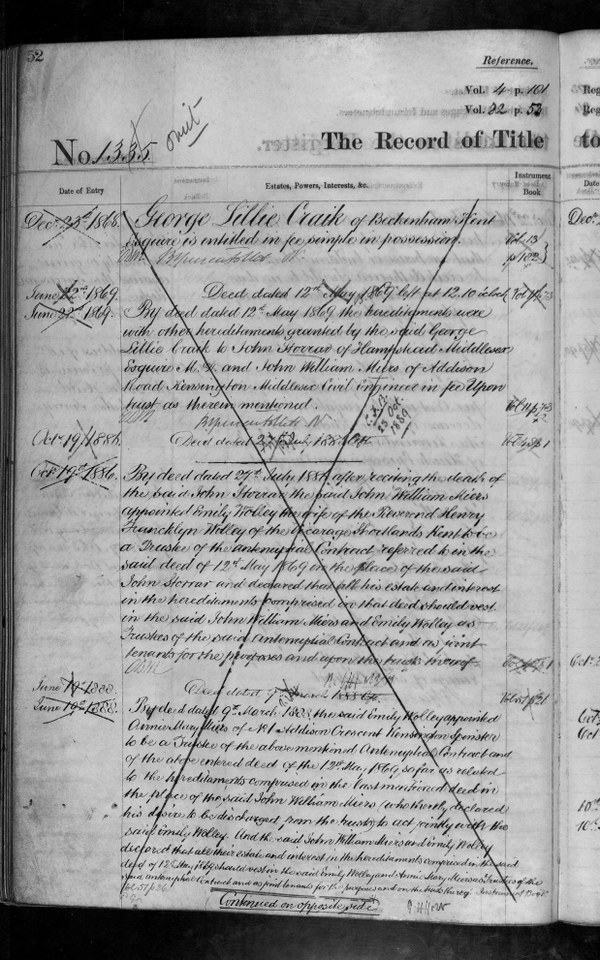 52
Reference.
Vol. 4 p. 101
Vol. 22 p. 53
No. 1335 omit
The Record of Title
Date of Entry
Estates, Powers, Interests, &c.
Instrument Book
Decr. 23rd 1868.
George Lillie Craik of Beckenham Kent
Esquire is entitled in fee simple in possession.
June 22nd 1869.
Deed dated 12th May 1869 left at 12.10 o'clock
June 22nd 1869.
By deed dated 12th May 1869 the hereditaments were
with other hereditaments granted by the said George
Lillie Craik to John Storrar of Hampstead Middlesex
Esquire M.D. and John William Miers of Addison
Road Kensington Middlesex Civil Engineer in fee Upon
trust as therein mentioned.
23 Oct.
1889
Octr. 19th 1886.
Deed dated 27th July 1886
Octr. 19th 1886.
By deed dated 27th July 1886 after reciting the death of
the said John Storrar the said John William Miers
appointed Emily Wolley the wife of the Reverend Henry
Francklyn Wolley of the Vicarage Shortlands Kent to be
a Trustee of the antenuptial Contract referred to in the
said deed of 12th May 1869 in the place of the said
John Storrar and declared that all his estate and interest
in the hereditaments comprised in that deed should vest
in the said John William Miers and Emily Wolley as
Trustees of the said Antenuptial Contract and as joint
tenants for the purposes and upon the trusts thereof
June 19th 1888.
Deed dated 9th March 1888
June 19th 1888.
By deed dated 9th March 1888 the said Emily Wolley appointed
Annie Mary Miers of No. 1 Addison Crescent Kensington Spinster
to be a Trustee of the above mentioned Antenuptial Contract and
of the above entered deed of the 12th May 1869 so far as related
to the hereditaments comprised in the last mentioned deed in
the place of the said John William Miers (who thereby declared
his desire to be discharged from the trusts) to act jointly with the
said Emily Wolley. And the said John William Miers and Emily Wolley
declared that all their estate and interest in the hereditaments comprised in the said
deed of 12th May 1869 should vest in the said Emily Wolley and Annie Mary Miers as Trustees of the
said antenuptial Contract and as joint tenants for the purposes and on the trusts thereof.
Continued on opposite side